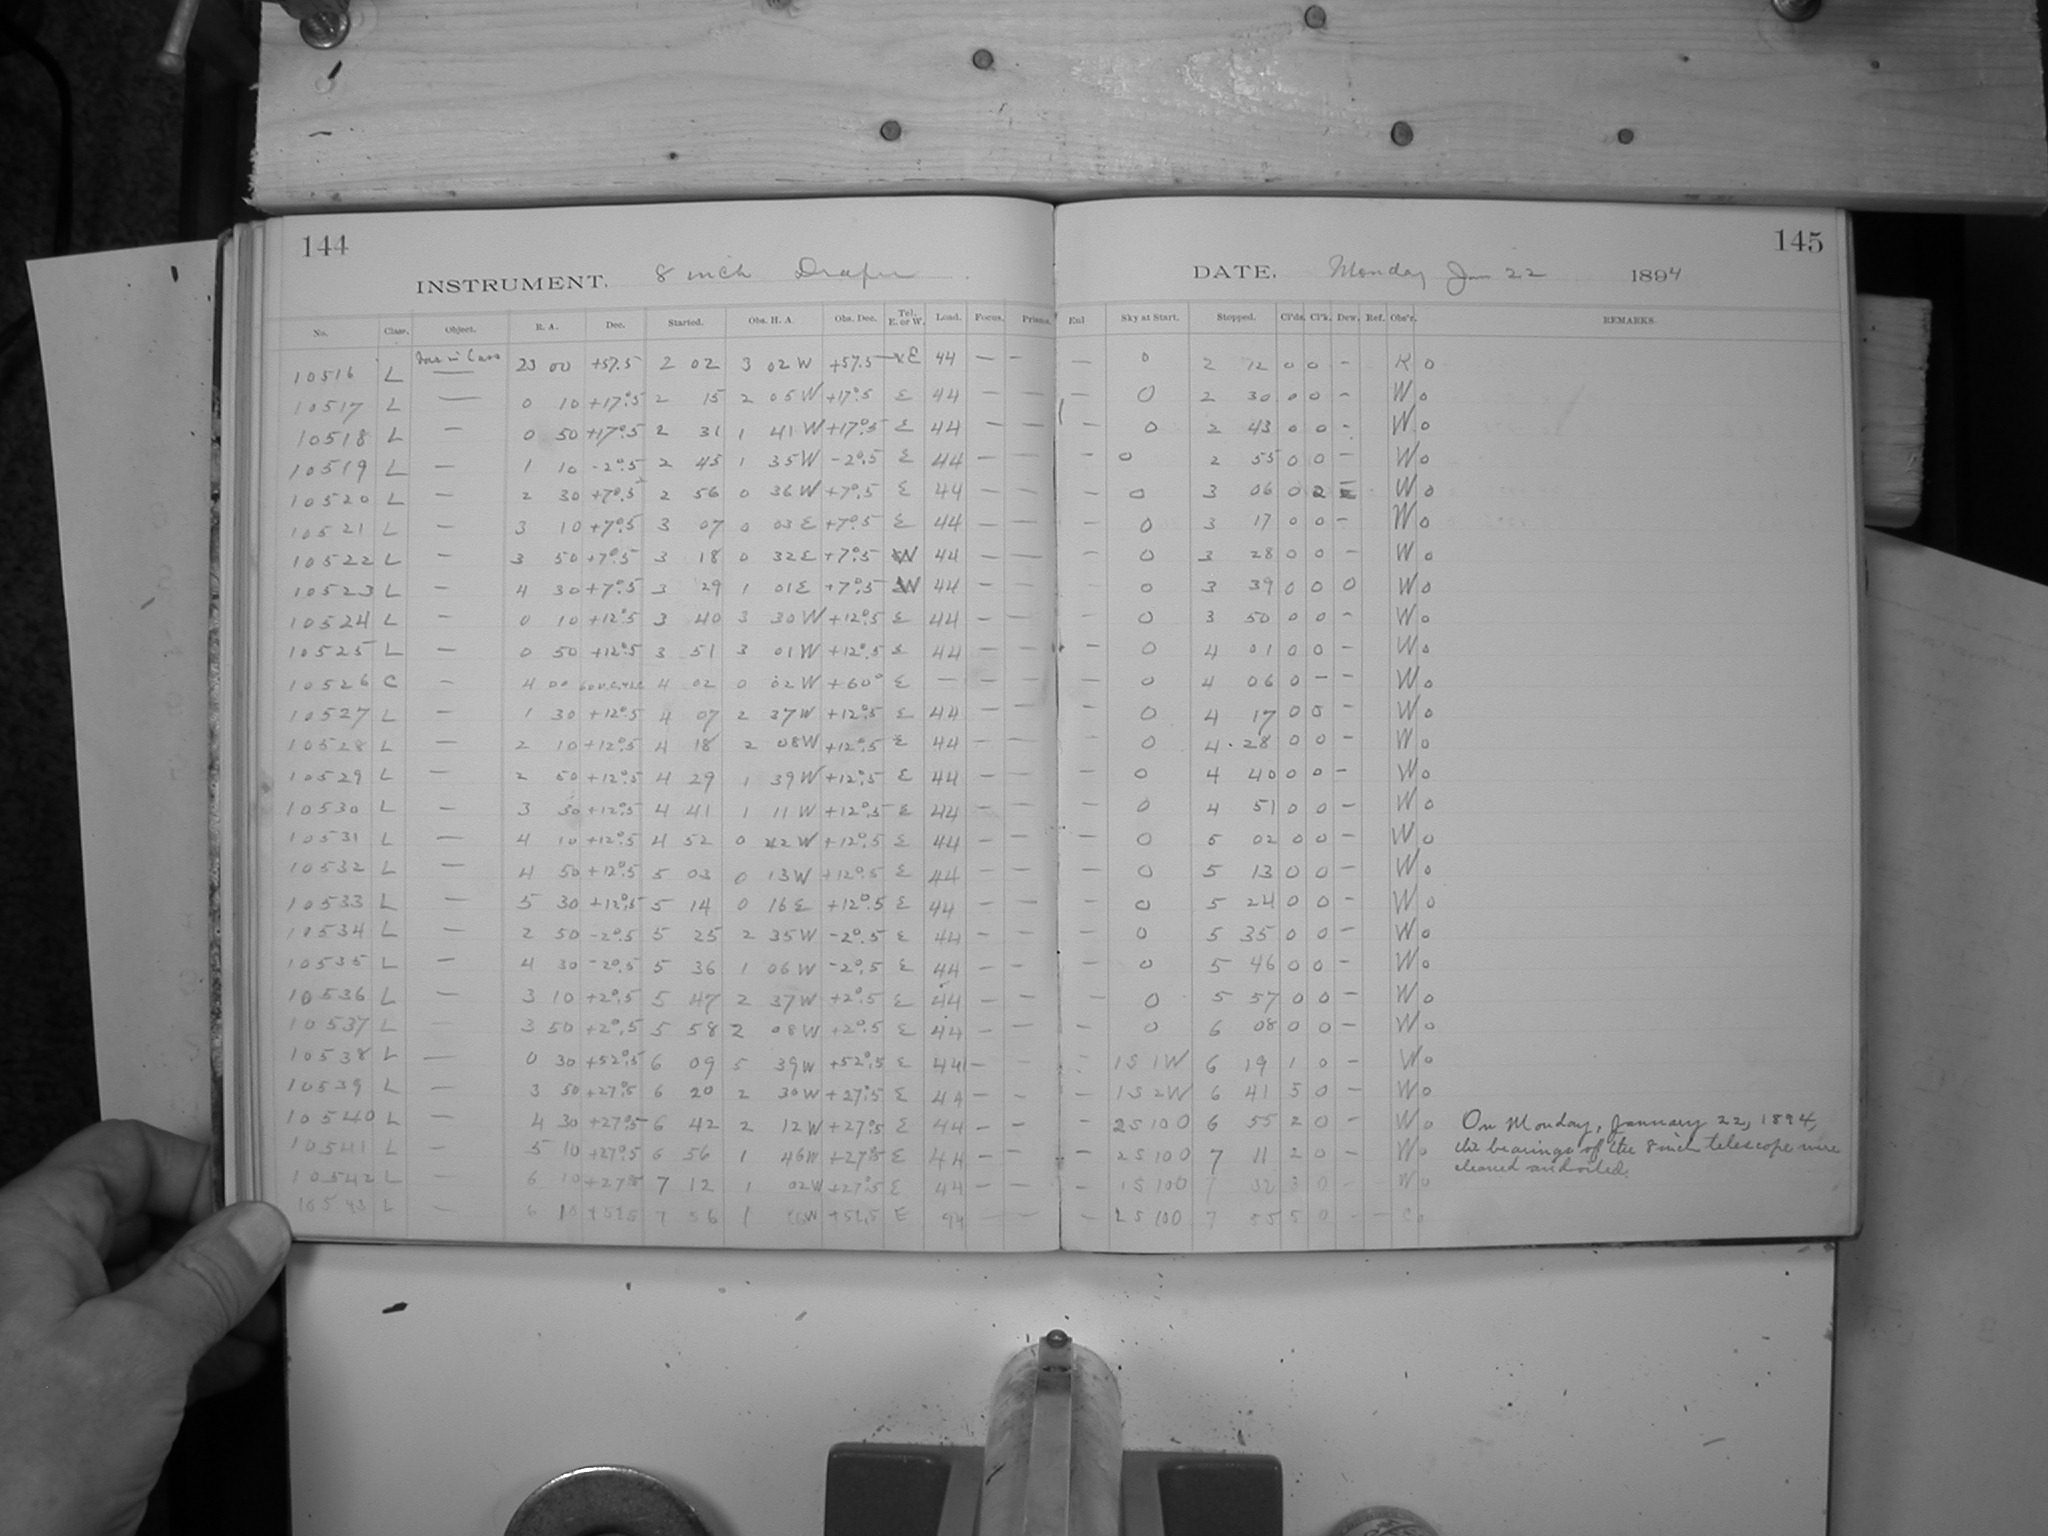 144
145
INSTRUMENT. 8 inch Draper
DATE. Monday Jan 22 1894
No. Class. Object. R. A. Dec. Started. Obs. H. A. Obs. Dec. Tel. E. or W. Load. Focus. Prisms. Sky at Start. Stopped. Cl'ds. Cl'k. Dew. Ref. Obs'r. REMARKS.
10516 L 23 00 +57.5 2 02 3 02 W +57.5 E 44 — — — 0 2 12 0 0 - K o
10517 L — 0 10 +17°.5 2 15 2 05 W +17°.5 E 44 — — — 0 2 30 0 0 - W o
10518 L — 0 50 +17°.5 2 31 1 41 W +17°.5 E 44 — — 0 2 43 0 0 - W o
10519 L — 1 10 -2°.5 2 45 1 35 W -2°.5 E 44 — — — 0 2 55 0 0 - W o
10520 L — 2 30 +7°.5 2 56 0 36 W +7°.5 E 44 — — — 0 3 06 0 2 W o
10521 L — 3 10 +7°.5 3 07 0 03 E +7°.5 E 44 — — — 0 3 17 0 0 - W o
10522 L — 3 50 +7°.5 3 18 0 32 E +7°.5 W 44 — — — 0 3 28 0 0 - W o
10523 L — 4 30 +7°.5 3 29 1 01 E +7°.5 W 44 — — — 0 3 39 0 0 0 W o
10524 L — 0 10 +12°.5 3 40 3 30 W +12°.5 E 44 — — — 0 3 50 0 0 - W o
10525 L — 0 50 +12°.5 3 51 3 01 W +12°.5 E 44 — — — 0 4 01 0 0 - W o
10526 C — 4 00 4 02 0 02 W +60° E — — — — 0 4 06 0 - - W o
10527 L — 1 30 +12°.5 4 07 2 37 W +12°.5 E 44 — — — 0 4 17 0 0 - W o
10528 L — 2 10 +12°.5 4 18 2 08 W +12°.5 E 44 — — — 0 4 28 0 0 - W o
10529 L — 2 50 +12°.5 4 29 1 39 W +12°.5 E 44 — — — 0 4 40 0 0 - W o
10530 L — 3 30 +12°.5 4 41 1 11 W +12°.5 E 44 — — — 0 4 51 0 0 - W o
10531 L — 4 10 +12°.5 4 52 0 42 W +12°.5 E 44 — — — 0 5 02 0 0 - W o
10532 L — 4 50 +12°.5 5 03 0 13 W +12°.5 E 44 — — — 0 5 13 0 0 - W o
10533 L — 5 30 +12°.5 5 14 0 16 E +12°.5 E 44 — — — 0 5 24 0 0 - W o
10534 L — 2 50 -2°.5 5 25 2 35 W -2°.5 E 44 — — — 0 5 35 0 0 - W o
10535 L — 4 30 -2°.5 5 36 1 06 W -2°.5 E 44 — — — 0 5 46 0 0 - W o
10536 L — 3 10 +2°.5 5 47 2 37 W +2°.5 E 44 — — — 0 5 57 0 0 - W o
10537 L — 3 50 +2°.5 5 58 2 08 W +2°.5 E 44 — — — 0 6 08 0 0 - W o
10538 L — 0 30 +52°.5 6 09 5 39 W +52°.5 E 44 — — 1S 1W 6 19 1 0 - W o
10539 L — 3 50 +27°.5 6 20 2 30 W +27°.5 E 44 — — — 1S 2W 6 41 5 0 - W o
10540 L — 4 30 +27°.5 6 42 2 12 W +27°.5 E 44 — — — 2S 100 6 55 2 0 - W o
10541 L — 5 10 +27°.5 6 56 1 46 W +27°.5 E 44 — — — 2S 100 7 11 2 0 - W o
10542 L — 6 10 +27°.5 7 12 1 02 W +27°.5 E 44 — — — 1S 100 7 32 3 0 - W o
10543 L — 6 10 7 36 1 E 44 — — — 2S 100 7 55 5 0 - —
On Monday, January 22, 1894,
the bearings of the 8 inch telescope were
cleaned and oiled.